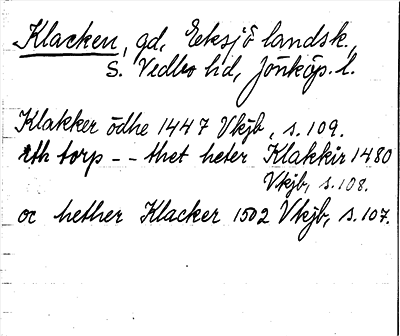 Klacken, gd, Eksjö landsk.,
S. Vedbo hd, Jönköp. l.
Klakker ödhe 1447 Vkjb, s. 109.
eth torp -- thet heter Klakkir 1480
Vkjb, s. 108.
oc hether Klacker 1502 Vkjb, s. 107.